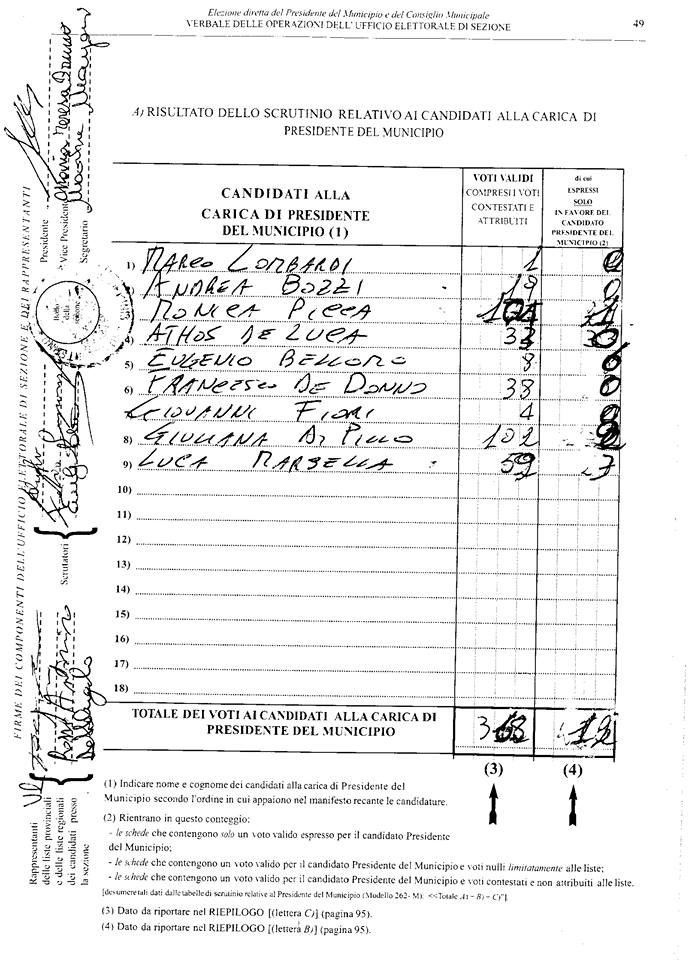 Elezione diretta del Presidente del Municipio e del Consiglio Municipale
VERBALE DELLE OPERAZIONI DELL' UFFICIO ELETTORALE DI SEZIONE
49
A) RISULTATO DELLO SCRUTINIO RELATIVO AI CANDIDATI ALLA CARICA DI
PRESIDENTE DEL MUNICIPIO
CANDIDATI ALLA
CARICA DI PRESIDENTE
DEL MUNICIPIO (1)
VOTI VALIDI
COMPRESI I VOTI
CONTESTATI E
ATTRIBUITI
di cui
ESPRESSI
SOLO
IN FAVORE DEL
CANDIDATO
PRESIDENTE DEL
MUNICIPIO (2)
1) MARCO LOMBARDI 1 0
ANDREA BOZZI 18 0
3) MONICA PICCA
4) ATHOS DE LUCA
5) EUGENIO BELLOMO 8
6) FRANCESCO DE DONNO 38 0
GIOVANNI FIORI 4
8) GIULIANA DI PILLO 102
9) LUCA MARSELLA 59 7
10)
11)
12)
13)
14)
15)
16)
17)
18)
TOTALE DEI VOTI AI CANDIDATI ALLA CARICA DI
PRESIDENTE DEL MUNICIPIO
(3) (4)
(1) Indicare nome e cognome dei candidati alla carica di Presidente del
Municipio secondo l'ordine in cui appaiono nel manifesto recante le candidature.
(2) Rientrano in questo conteggio:
- le schede che contengono solo un voto valido espresso per il candidato Presidente
del Municipio;
- le schede che contengono un voto valido per il candidato Presidente del Municipio e voti nulli limitatamente alle liste;
- le schede che contengono un voto valido per il candidato Presidente del Municipio e voti contestati e non attribuiti alle liste.
[desumere tali dati dalle tabelle di scrutinio relative al Presidente del Municipio (Modello 262- M): <<Totale A) - B) = C)"].
(3) Dato da riportare nel RIEPILOGO [(lettera C)] (pagina 95).
(4) Dato da riportare nel RIEPILOGO [(lettera B)] (pagina 95).
FIRME DEI COMPONENTI DELL'UFFICIO ELETTORALE DI SEZIONE E DEI RAPPRESENTANTI
Presidente
Vice Presidente
Segretario
Bollo
della
sezione
Scrutatori
Rappresentanti
delle liste provinciali
e delle liste regionali
dei candidati presso
la sezione